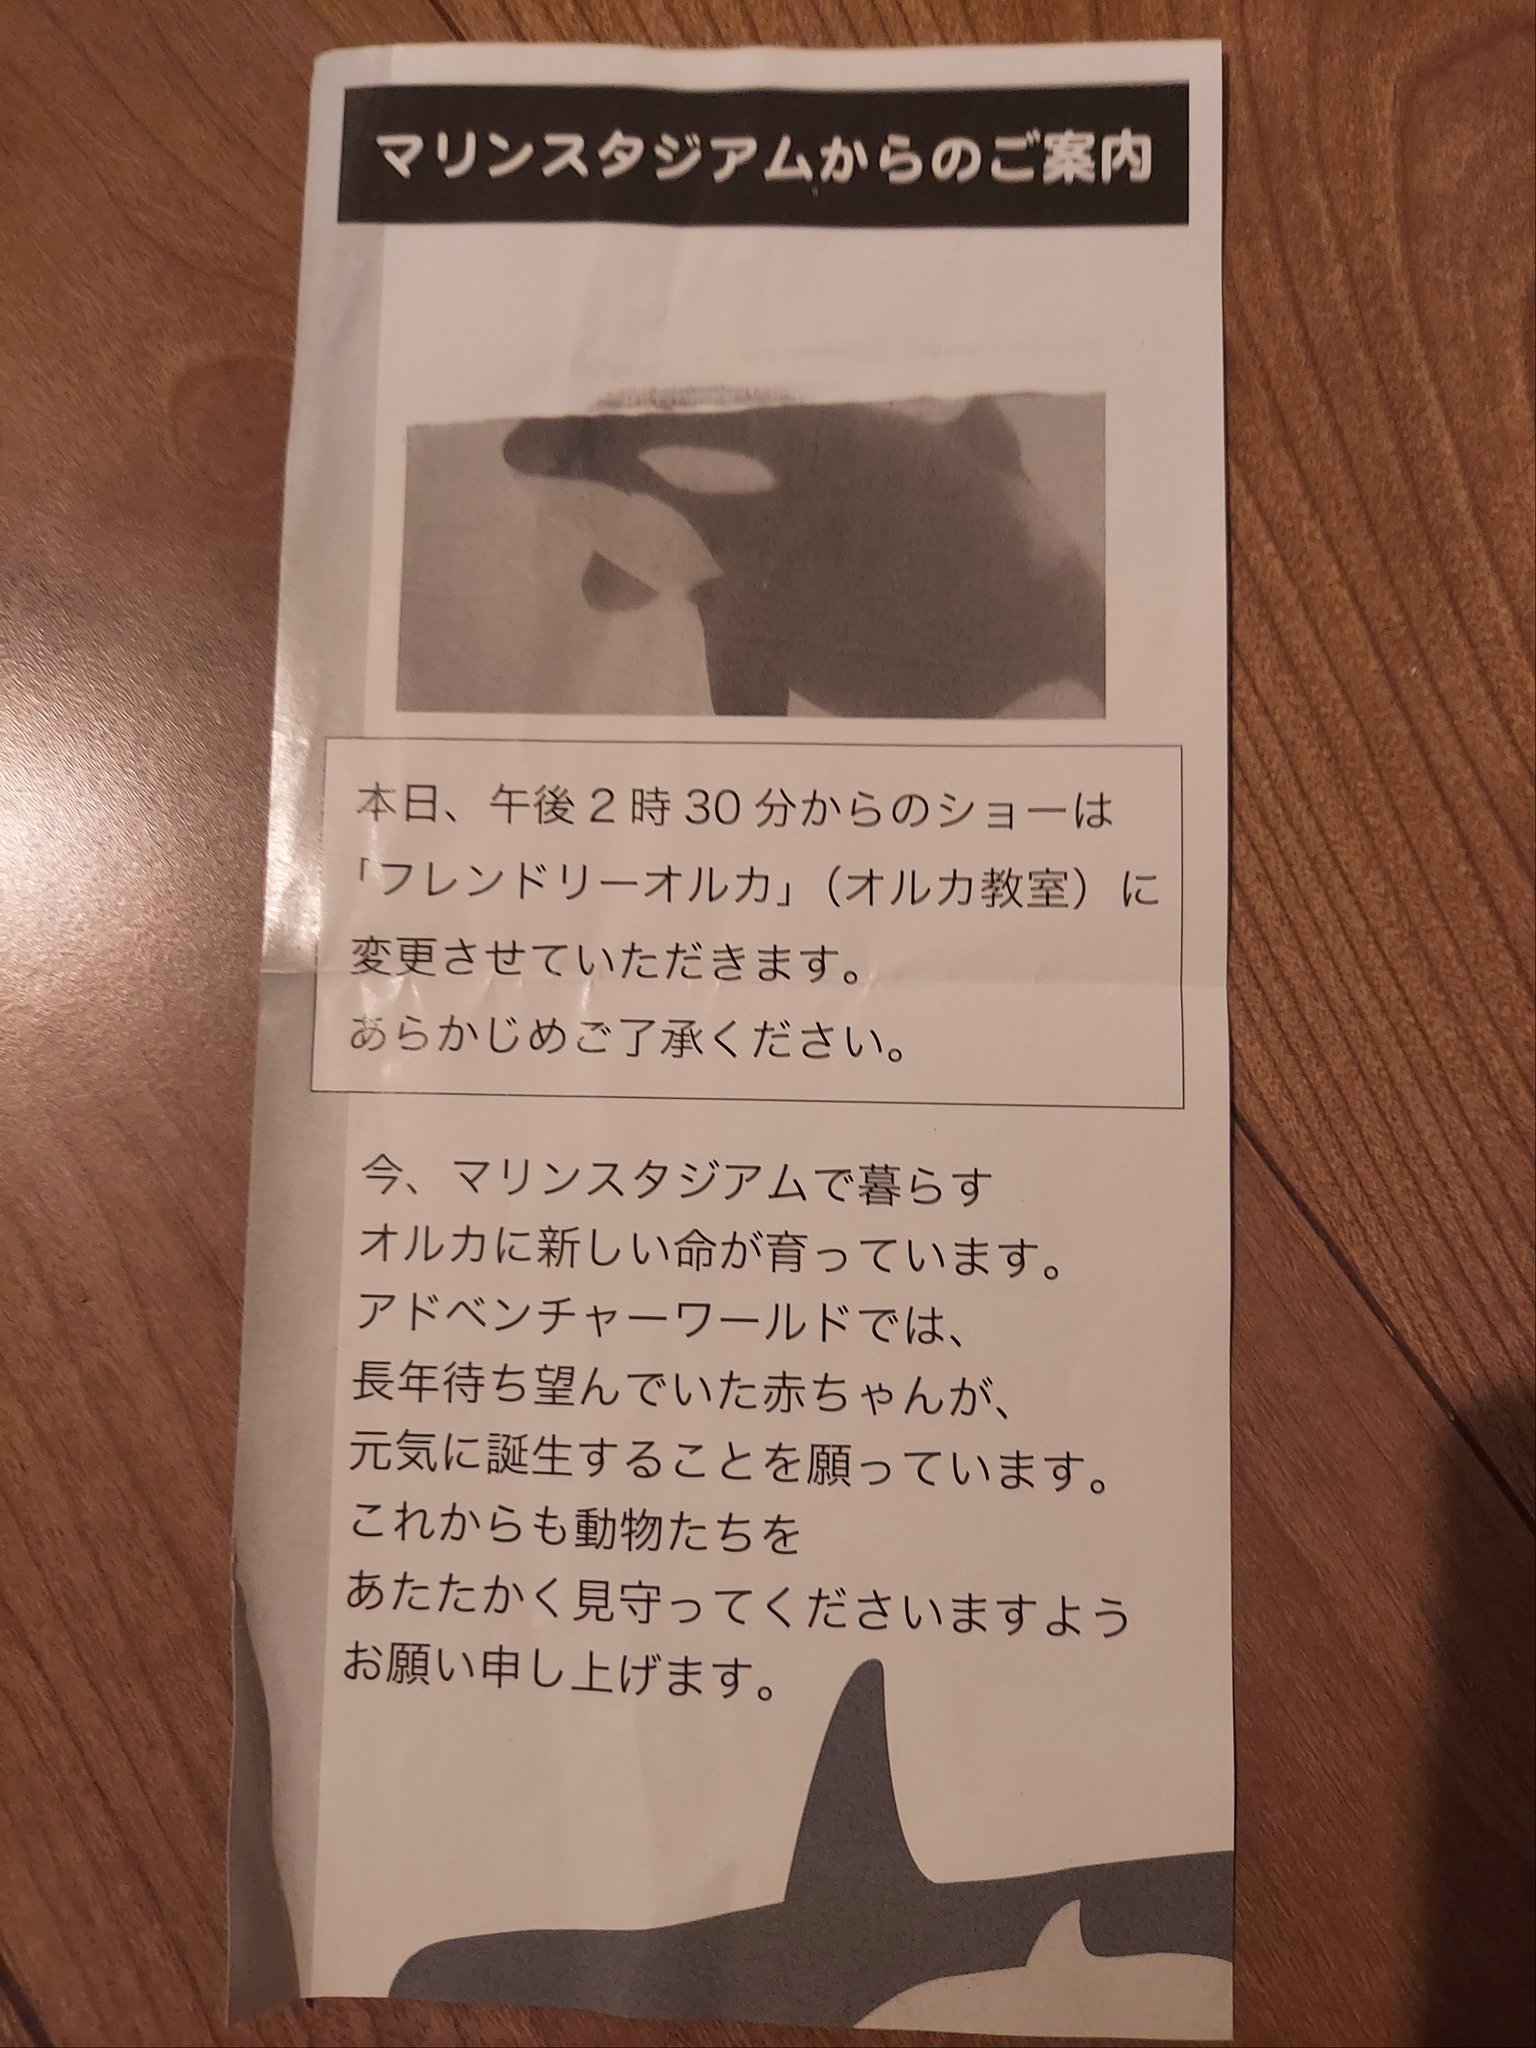 マリンスタジアムからのご案内
本日、午後2時30分からのショーは
「フレンドリーオルカ」（オルカ教室）に
変更させていただきます。
あらかじめご了承ください。
今、マリンスタジアムで暮らす
オルカに新しい命が育っています。
アドベンチャーワールドでは、
長年待ち望んでいた赤ちゃんが、
元気に誕生することを願っています。
これからも動物たちを
あたたかく見守ってくださいますよう
お願い申し上げます。